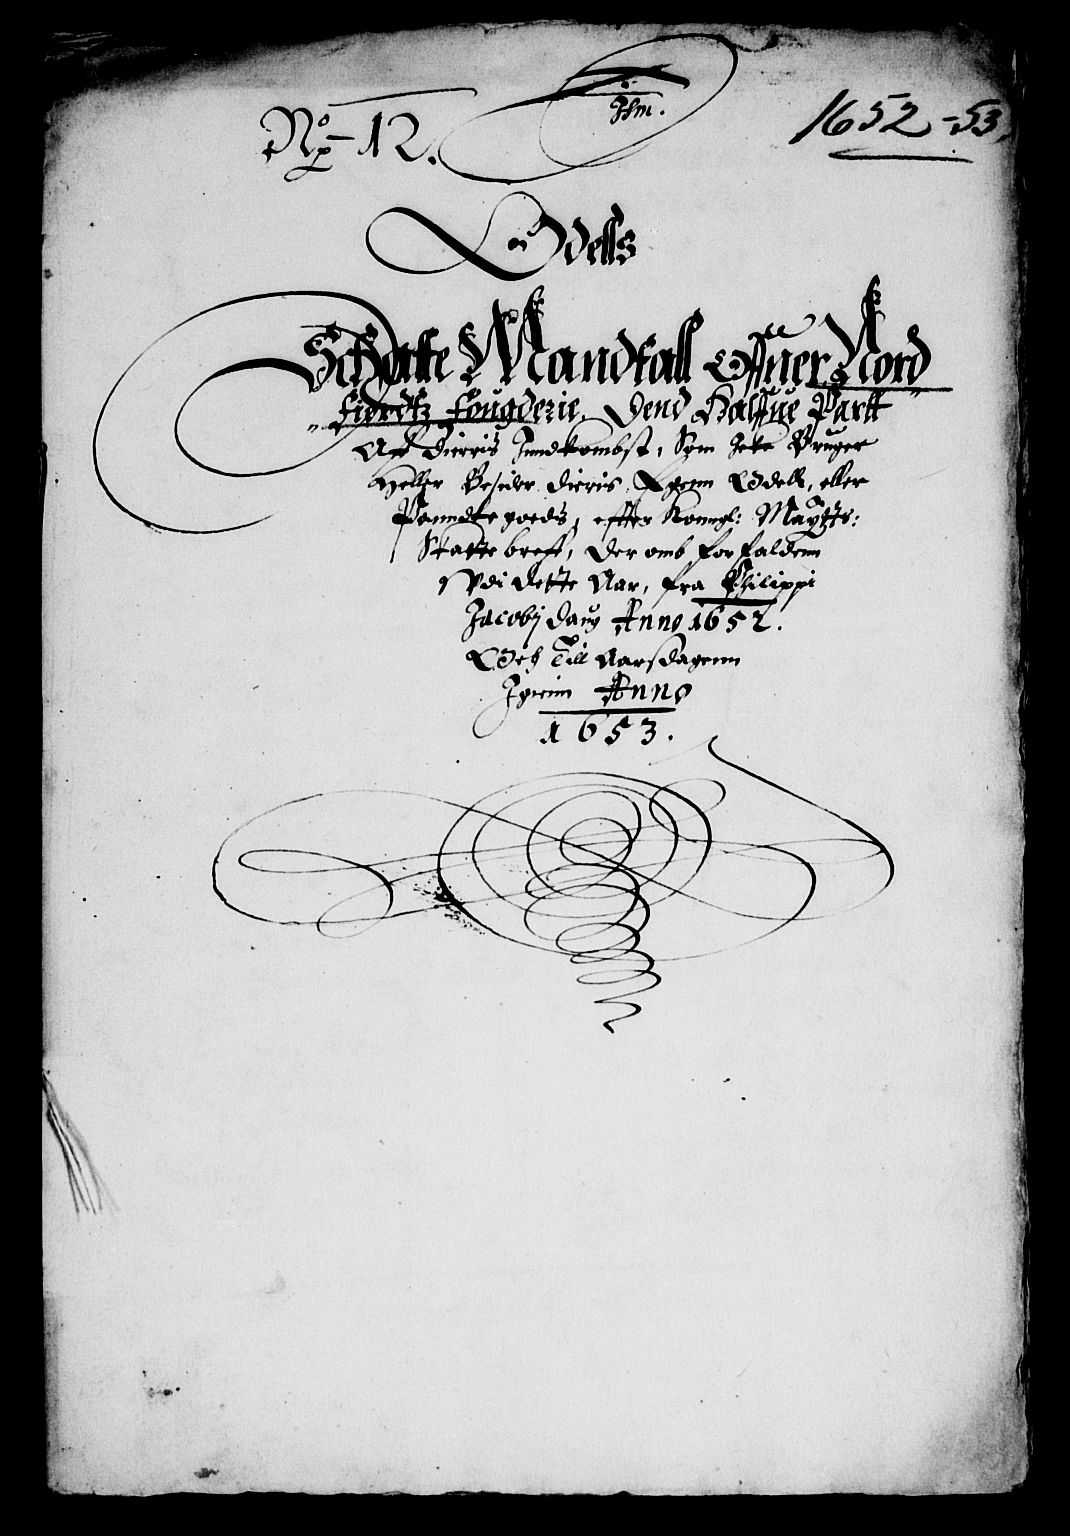 No 12.
1652-53
Odells
Schatte Mandtall Offuer Nord
fiordtz fougderie, Dend Halffue Partt
Aff dierris Inndkombst, Som Icke Bruger
Heller Besider dierris Egenn Odell, eller
Panndte goeds, efftter Konngl: Maytts:
Skatte breff, der omb forfaldenn
Vdi dette Aar, fra Philippi
Jacobj daug Anno 1652.
Och Till Aarsdagenn
Igienn Anno
1653.